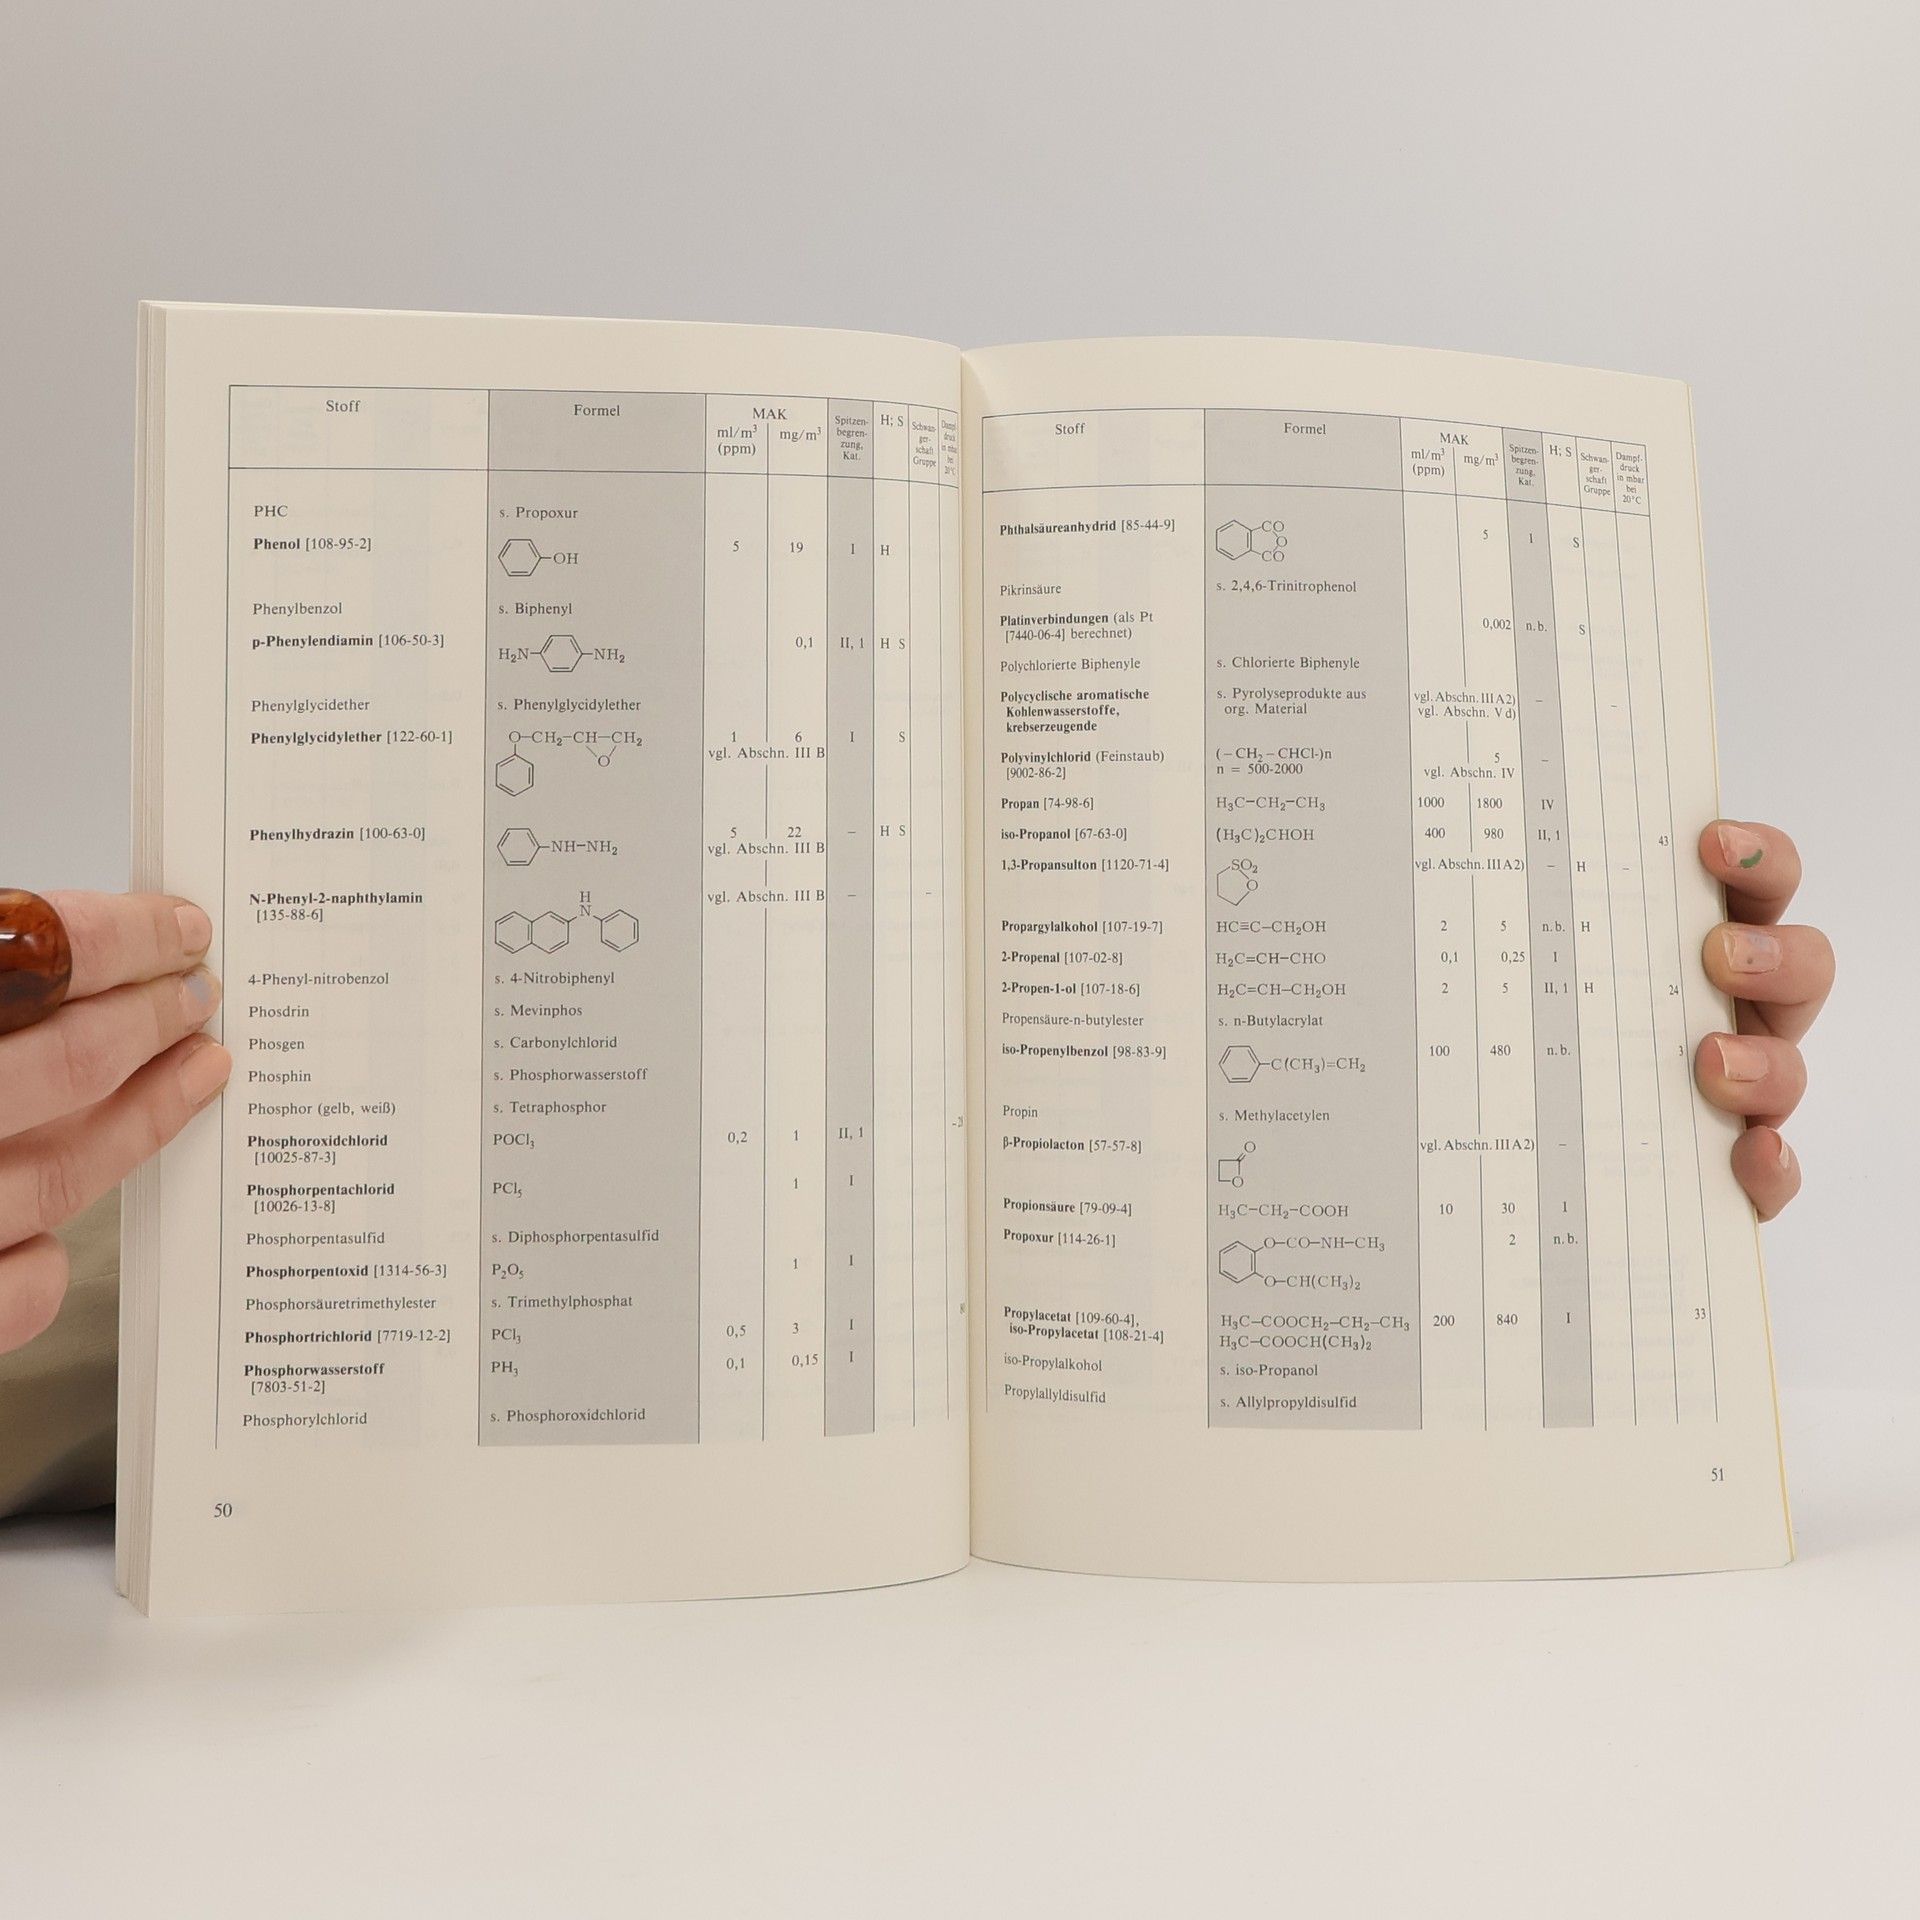 Stoff Formel MAK Spitzen-begren-zung, Kat. H; S Schwan-ger-schaft Gruppe
ml/m³ (ppm) mg/m³
PHC s. Propoxur
Phenol [108-95-2] OH 5 19 I H
Phenylbenzol s. Biphenyl
p-Phenylendiamin [106-50-3] H₂N NH₂ 0,1 II, 1 H S
Phenylglycidether s. Phenylglycidylether
Phenylglycidylether [122-60-1] O–CH₂–CH–CH₂ 1 6 I S
O vgl. Abschn. III B
Phenylhydrazin [100-63-0] NH–NH₂ 5 22 – H S
vgl. Abschn. III B
N-Phenyl-2-naphthylamin H N vgl. Abschn. III B – –
[135-88-6]
4-Phenyl-nitrobenzol s. 4-Nitrobiphenyl
Phosdrin s. Mevinphos
Phosgen s. Carbonylchlorid
Phosphin s. Phosphorwasserstoff
Phosphor (gelb, weiß) s. Tetraphosphor
Phosphoroxidchlorid POCl₃ 0,2 1 II, 1
[10025-87-3]
Phosphorpentachlorid PCl₅ 1 I
[10026-13-8]
Phosphorpentasulfid s. Diphosphorpentasulfid
Phosphorpentoxid [1314-56-3] P₂O₅ 1 I
Phosphorsäuretrimethylester s. Trimethylphosphat
Phosphortrichlorid [7719-12-2] PCl₃ 0,5 3 I
Phosphorwasserstoff PH₃ 0,1 0,15 I
[7803-51-2]
Phosphorylchlorid s. Phosphoroxidchlorid
50
Stoff Formel MAK Spitzen-begren-zung, Kat. H; S Schwan-ger-schaft Gruppe Dampf-druck in mbar bei 20°C
ml/m³ (ppm) mg/m³
Phthalsäureanhydrid [85-44-9] CO O CO 5 I S
Pikrinsäure s. 2,4,6-Trinitrophenol
Platinverbindungen (als Pt 0,002 n.b. S
[7440-06-4] berechnet)
Polychlorierte Biphenyle s. Chlorierte Biphenyle
Polycyclische aromatische s. Pyrolyseprodukte aus vgl. Abschn. III A2) – –
Kohlenwasserstoffe, org. Material vgl. Abschn. V d)
krebserzeugende
Polyvinylchlorid (Feinstaub) (–CH₂–CHCl-)n 5 –
[9002-86-2] n = 500-2000 vgl. Abschn. IV
Propan [74-98-6] H₃C–CH₂–CH₃ 1000 1800 IV
iso-Propanol [67-63-0] (H₃C)₂CHOH 400 980 II, 1 43
1,3-Propansulton [1120-71-4] SO₂ O vgl. Abschn. III A2) – H –
Propargylalkohol [107-19-7] HC≡C–CH₂OH 2 5 n.b. H
2-Propenal [107-02-8] H₂C=CH–CHO 0,1 0,25 I
2-Propen-1-ol [107-18-6] H₂C=CH–CH₂OH 2 5 II, 1 H 24
Propensäure-n-butylester s. n-Butylacrylat
iso-Propenylbenzol [98-83-9] C(CH₃)=CH₂ 100 480 n.b. 3
Propin s. Methylacetylen
β-Propiolacton [57-57-8] O O vgl. Abschn. III A2) – –
Propionsäure [79-09-4] H₃C–CH₂–COOH 10 30 I
Propoxur [114-26-1] O–CO–NH–CH₃ 2 n.b.
O–CH(CH₃)₂
Propylacetat [109-60-4], H₃C–COOCH₂–CH₂–CH₃ 200 840 I 33
iso-Propylacetat [108-21-4] H₃C–COOCH(CH₃)₂
iso-Propylalkohol s. iso-Propanol
Propylallyldisulfid s. Allylpropyldisulfid
51